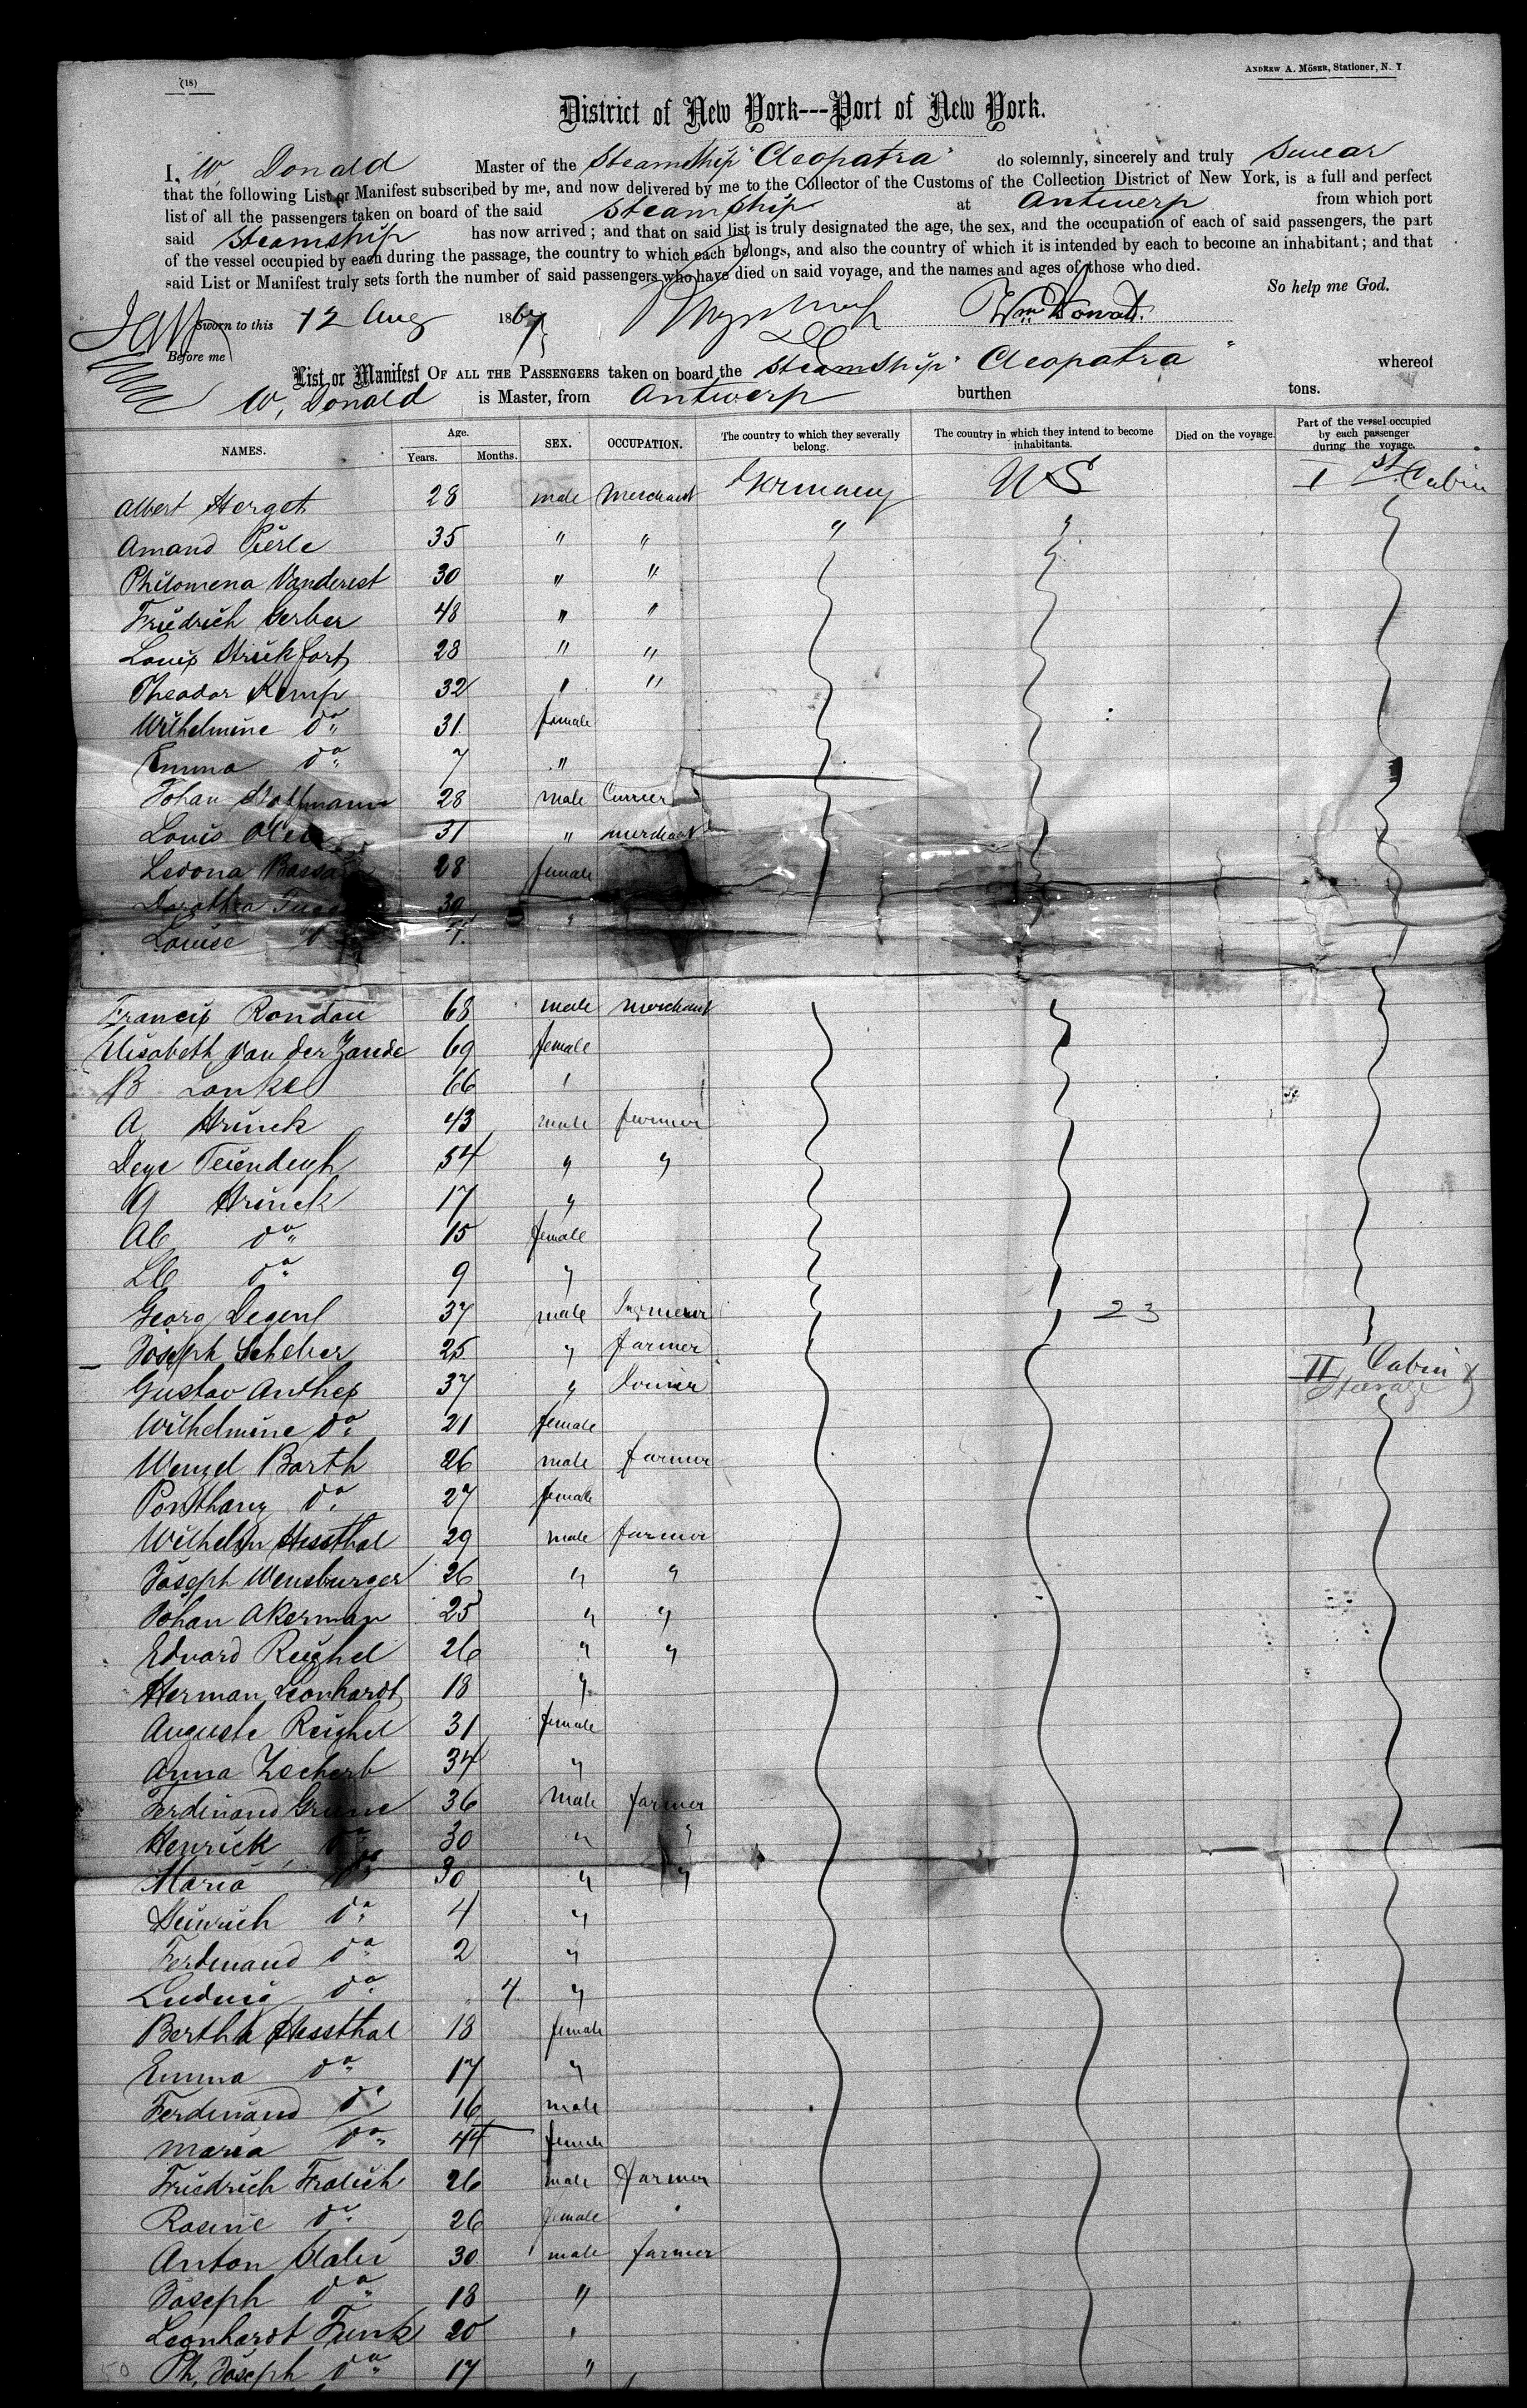 (18)
ANDREW A. MÖSER, Stationer, N. Y.
District of New York---Port of New York.
I, W. Donald Master of the Steamship "Cleopatra" do solemnly, sincerely and truly Swear
that the following List or Manifest subscribed by me, and now delivered by me to the Collector of the Customs of the Collection District of New York, is a full and perfect
list of all the passengers taken on board of the said Steamship at Antwerp from which port
said Steamship has now arrived; and that on said list is truly designated the age, the sex, and the occupation of each of said passengers, the part
of the vessel occupied by each during the passage, the country to which each belongs, and also the country of which it is intended by each to become an inhabitant; and that
said List or Manifest truly sets forth the number of said passengers who have died on said voyage, and the names and ages of those who died.
So help me God.
Sworn to this 12 Aug 1867 Wm Donald.
Before me
List or Manifest OF ALL THE PASSENGERS taken on board the Steamship "Cleopatra" whereof
W. Donald is Master, from Antwerp burthen tons.
NAMES. Age. Years. Months. SEX. OCCUPATION. The country to which they severally belong. The country in which they intend to become inhabitants. Died on the voyage. Part of the vessel occupied by each passenger during the voyage.
Albert Herget 28 male Merchant Germany US I st Cabin
Amand Pierle 35 " " " "
Philomena Vanderest 30 " "
Friedrich Gerber 48 " "
Louis Strickfort 28 " "
Theodor Kemp 32 " "
Wilhelmine do 31 female
Emma do 7 "
Johan Hoffmann 28 male Currier
Louis 31 " merchant
Ledona 28 female
Dorothea 30
Louise do 7 "
Francis Rondau 68 male merchant
Elisabeth van der Zande 69 female
B Lonke 66 "
A Hrinck 43 male farmer
Deye 54 " "
G Hrinck 17 "
AC do 15 female
LC do 9 "
Georg Degenf 37 male 23
Joseph Scheber 25 " farmer
Gustav Anthes 37 " Joiner II Cabin & Steerage
Wilhelmine do 21 female
Wenzel Barth 26 male farmer
do 27 female
Wilhelm Hessthal 29 male farmer
Joseph Wensburger 26 " "
Johan Akerman 25 " "
Edward Reighel 26 " "
Herman Leonhardt 18 "
Auguste Reighel 31 female
Anna Zscherb 34 "
Ferdinand Grune 36 male farmer
Henrick do 30 " "
Maria do 30 " "
Heinrich do 4 "
Ferdinand do 2 "
Ludwig do 4 "
Bertha Hessthal 18 female
Emma do 17 "
Ferdinand do 16 male
Maria do 44 female
Friedrich Frolich 26 male farmer
Rosine do 26 female
Anton Halir 30 male farmer
Joseph do 18 "
Leonhardt Funk 20 "
50 Ph. Joseph do 17 "